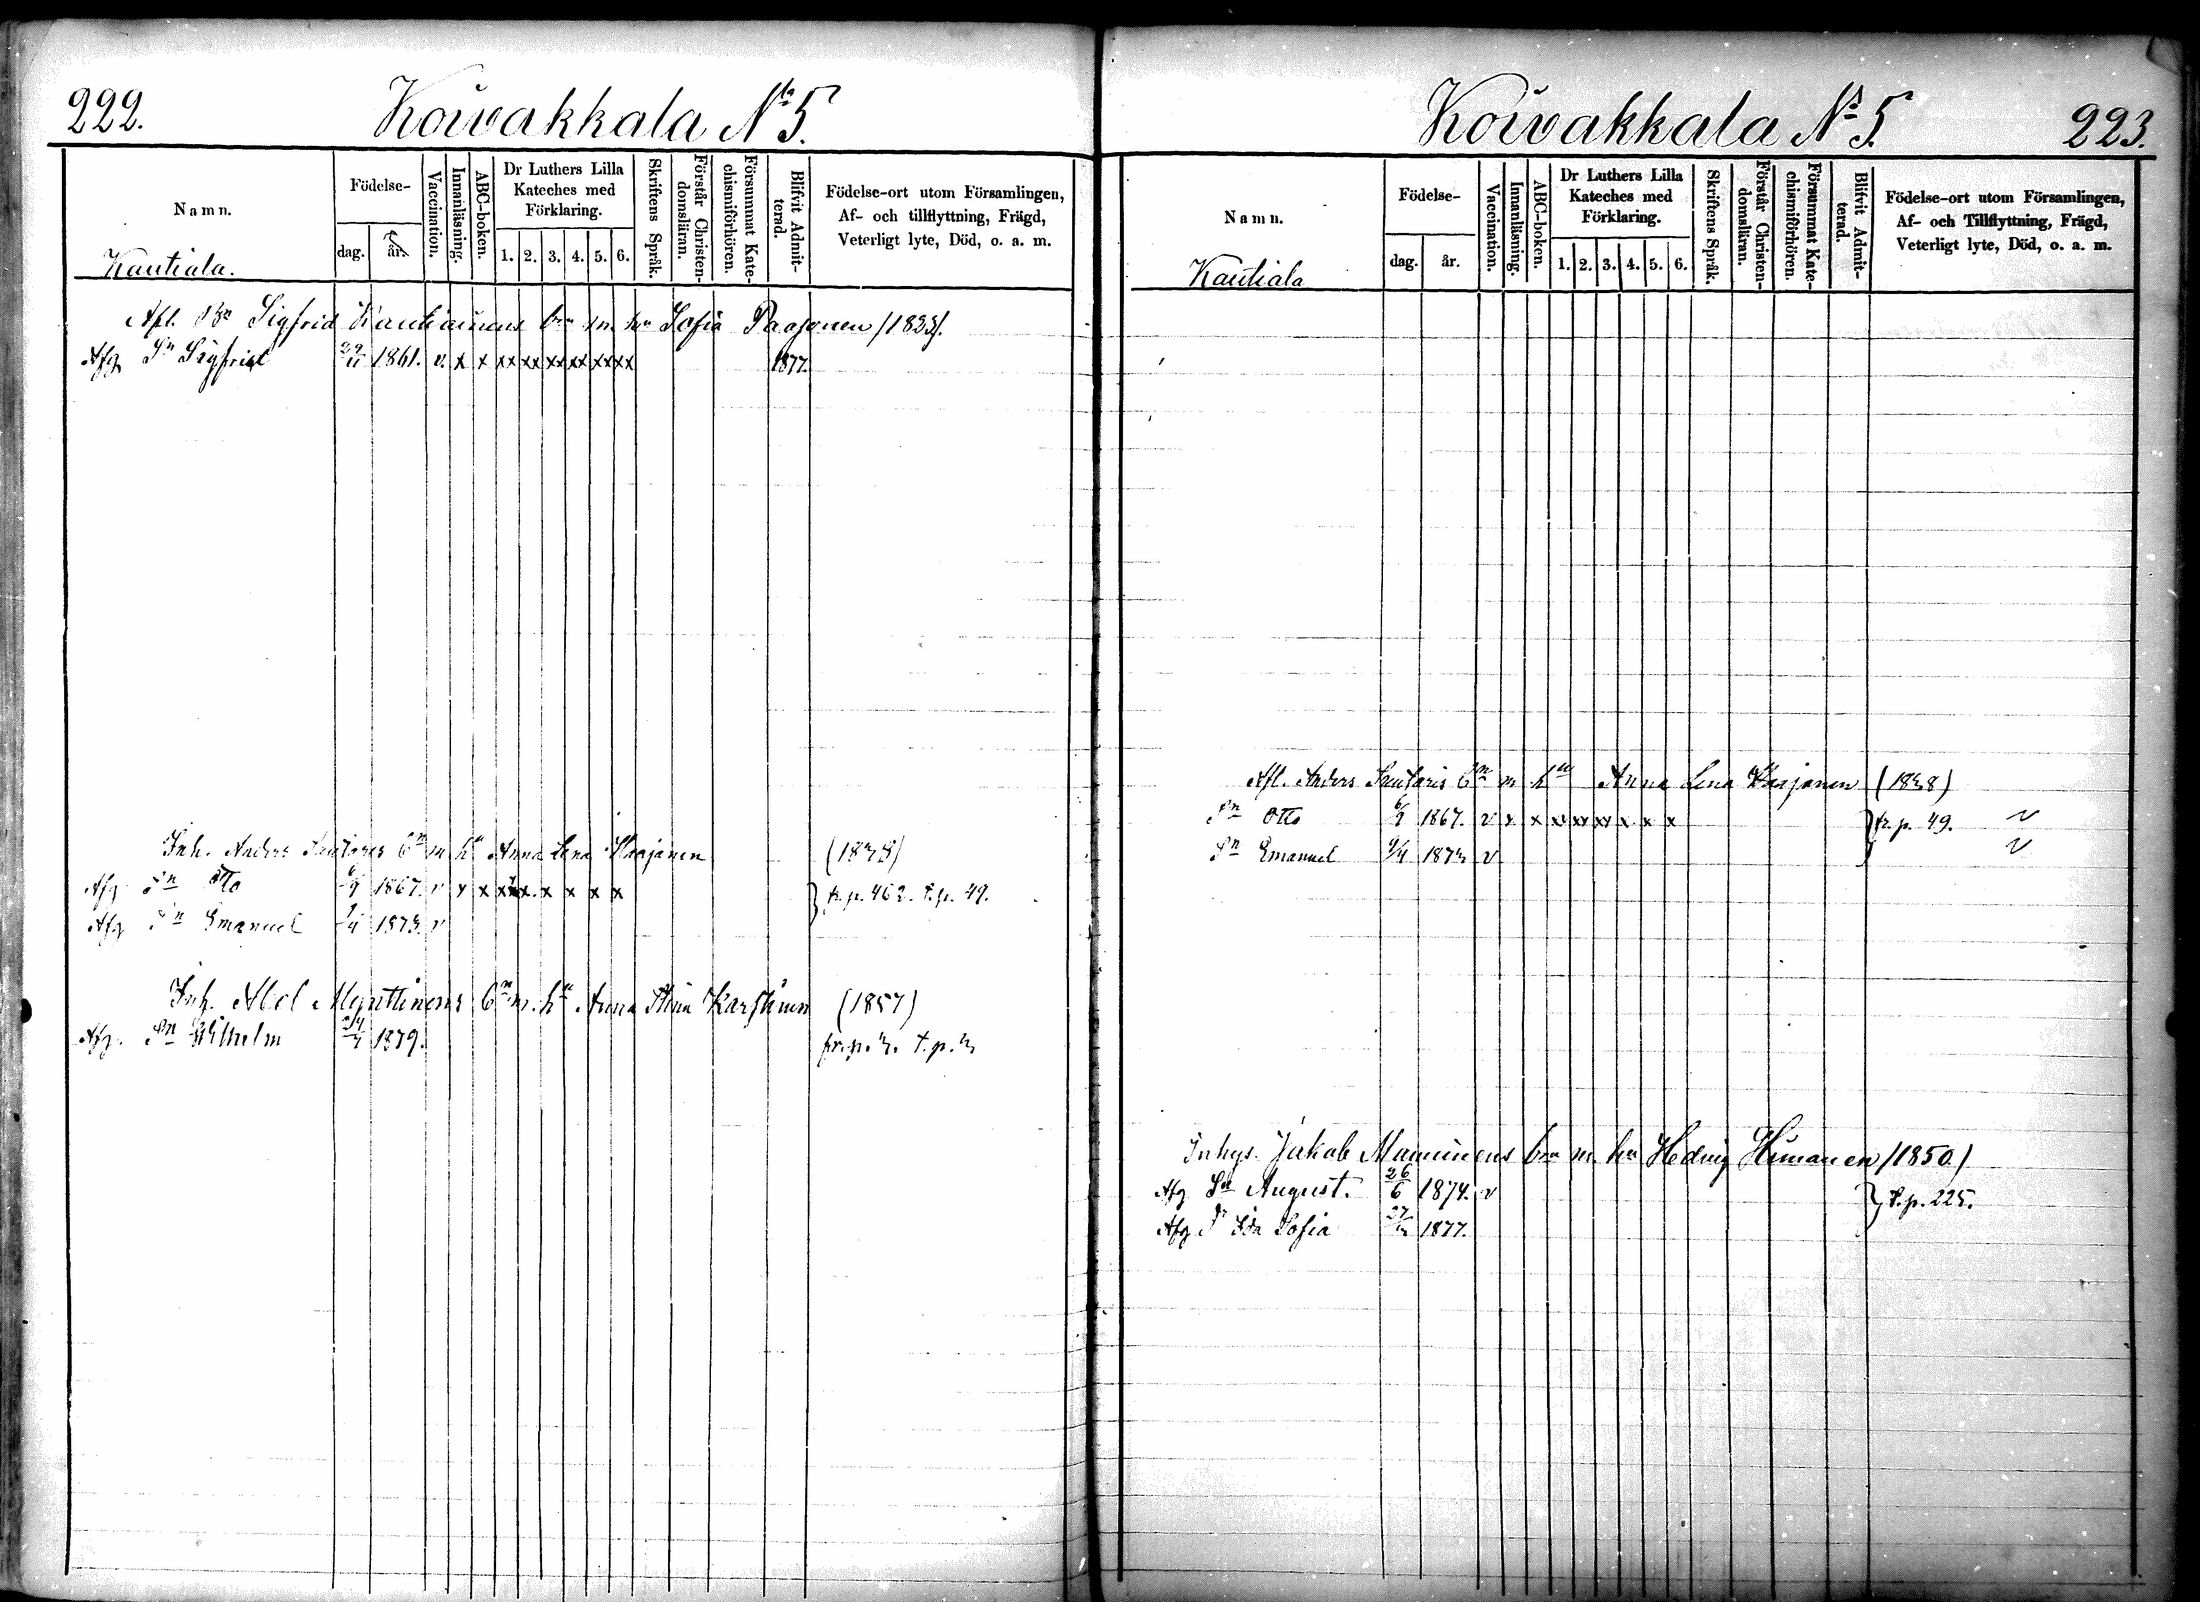 222.
Koivakkala № 5.
Namn.
Födelse-
dag.
år.
Vaccination.
Innanläsning.
ABC-boken.
Dr Luthers Lilla Kateches med Förklaring.
1. 2. 3. 4. 5. 6.
Skriftens Språk.
Förstår Christendomsläran.
Försummat Katechismiförhören.
Blifvit Admitterad.
Födelse-ort utom Församlingen,
Af- och tillflyttning, Frägd,
Veterligt lyte, Död, o. a. m.
Kautiala.
Afl. Bn Sigfrid Kautiainens bn m. hu Sofia Paajonen /1833/.
Afg Sn Sigfrid 29/11 1861. v. x x xx xx xx xx xx xx 1877.
Inh. Anders bn m hu Anna Lena (1838)
Afg Sn Otto 6/9 1867. v x x x x x x
fr. p. 462. t. p. 49.
Afg Sn Emanuel 1873. v
Inh. Abel Myyttinens bn m. hu Anna Stina Karhunen (1857)
Afg. Sn Wilhelm 1879.
fr. p. 3. t. p. 3
Koivakkala № 5.
223.
Namn.
Födelse-
dag.
år.
Vaccination.
Innanläsning.
ABC-boken.
Dr Luthers Lilla Kateches med Förklaring.
1. 2. 3. 4. 5. 6.
Skriftens Språk.
Förstår Christendomsläran.
Försummat Katechismiförhören.
Blifvit Admitterad.
Födelse-ort utom Församlingen,
Af- och Tillflyttning, Frägd,
Veterligt lyte, Död, o. a. m.
Kautiala
Afl. Anders bn m hu Anna Lena (1838)
Sn Otto 6/9 1867. v x x xx xx xx x x x
fr. p. 49. v
Sn Emanuel 1873 v v
Inhys. Jakob Manninens bn m. hu Hedvig Himanen /1850/
Afg Sn August. 26/6 1874. v
t. p. 225.
Afg Dr Ida Sofia 1877.